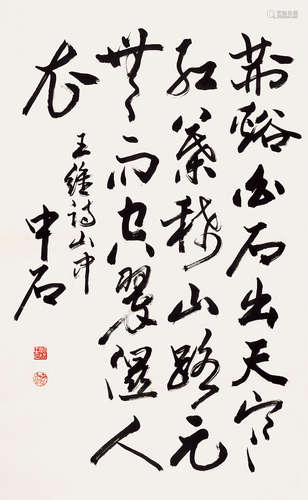 荆谿白石出天寒
红葉稀山路元
無雨空翠濕人
衣
王維詩山中
中石